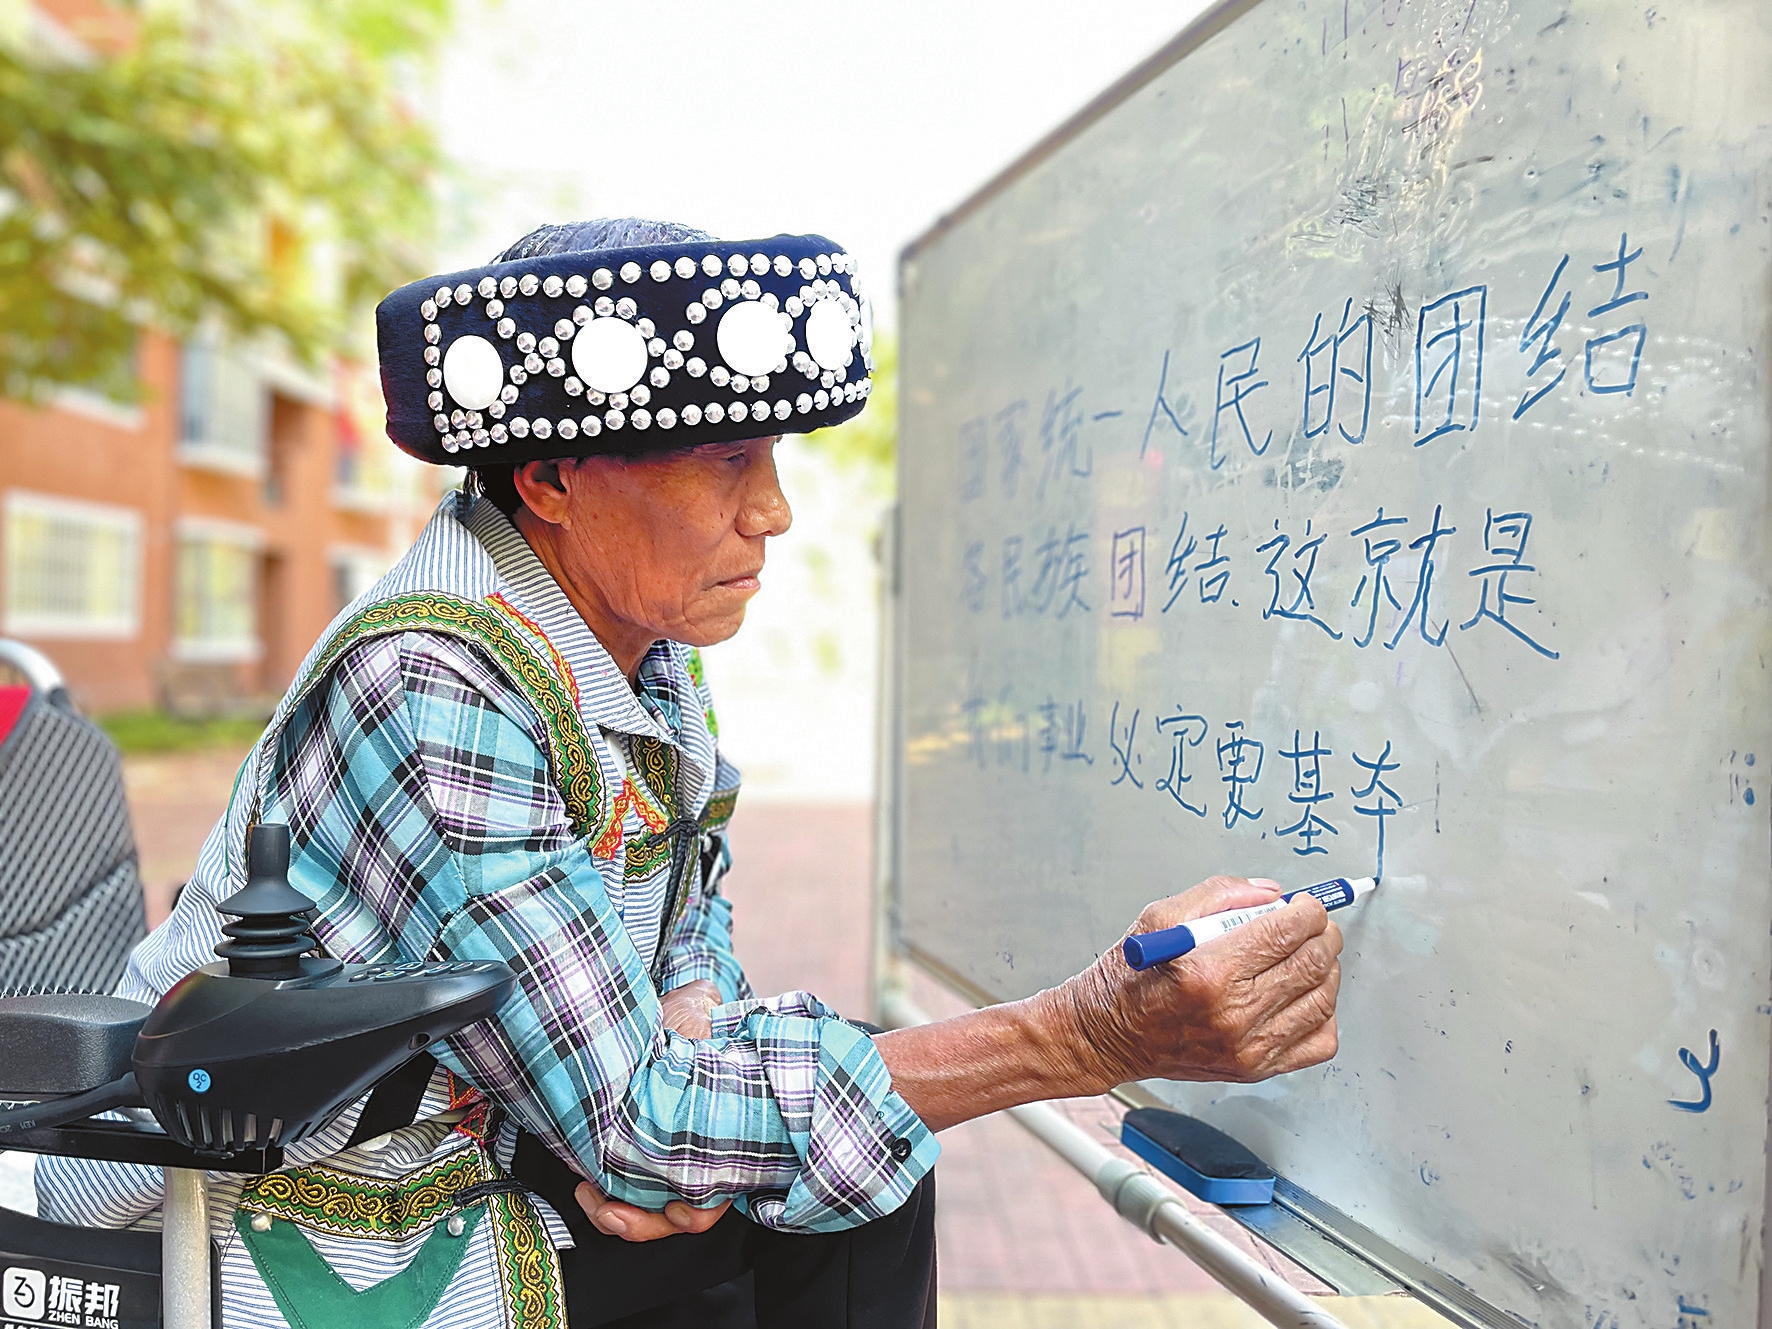 国家统一人民的团结
各民族团结.这就是
我们事业必定要.基本
振邦
ZHEN BANG
QC
2